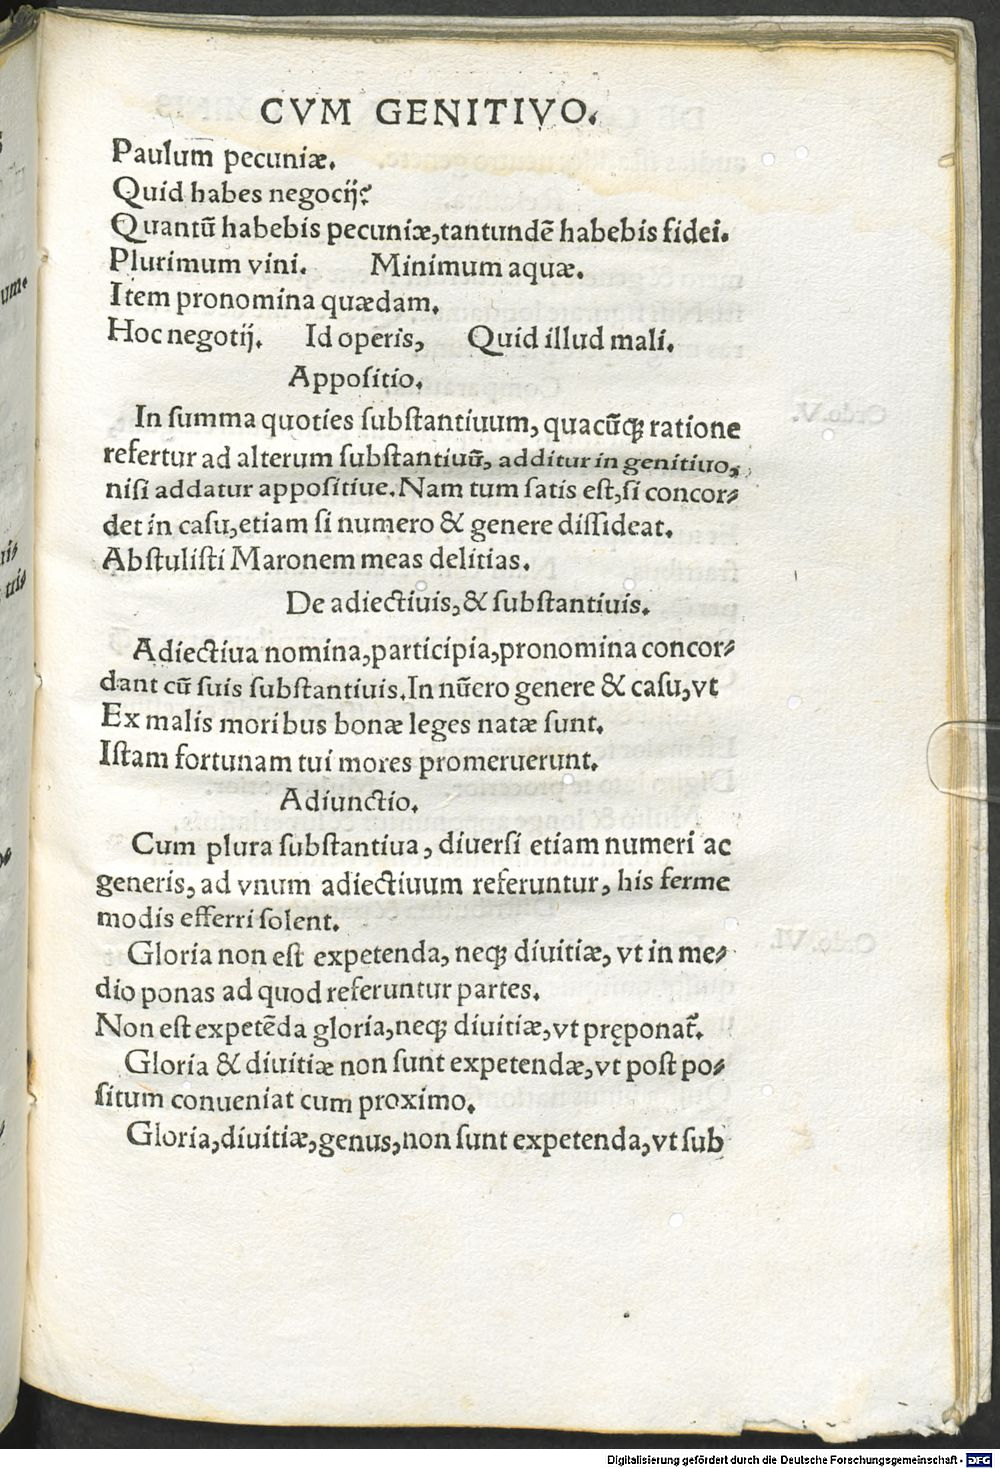 CVM GENITIVO.
Paulum pecuniæ.
Quid habes negocij?
Quantū habebis pecuniæ, tantundē habebis fidei.
Plurimum vini. Minimum aquæ.
Item pronomina quædam.
Hoc negotij. Id operis, Quid illud mali.
Appositio.
In summa quoties substantiuum, quacūqꝫ ratione
refertur ad alterum substantiuū, additur in genitiuo,
nisi addatur appositiue. Nam tum satis est, si concor-
det in casu, etiam si numero & genere dissideat.
Abstulisti Maronem meas delitias.
De adiectiuis, & substantiuis.
Adiectiua nomina, participia, pronomina concor-
dant cū suis substantiuis. In nūero genere & casu, vt
Ex malis moribus bonæ leges natæ sunt.
Istam fortunam tui mores promeruerunt.
Adiunctio.
Cum plura substantiua, diuersi etiam numeri ac
generis, ad vnum adiectiuum referuntur, his ferme
modis efferri solent.
Gloria non est expetenda, neqꝫ diuitiæ, vt in me-
dio ponas ad quod referuntur partes.
Non est expetēda gloria, neqꝫ diuitiæ, vt pręponat᷑.
Gloria & diuitiæ non sunt expetendæ, vt post po-
situm conueniat cum proximo.
Gloria, diuitiæ, genus, non sunt expetenda, vt sub
Digitalisierung gefördert durch die Deutsche Forschungsgemeinschaft - DFG